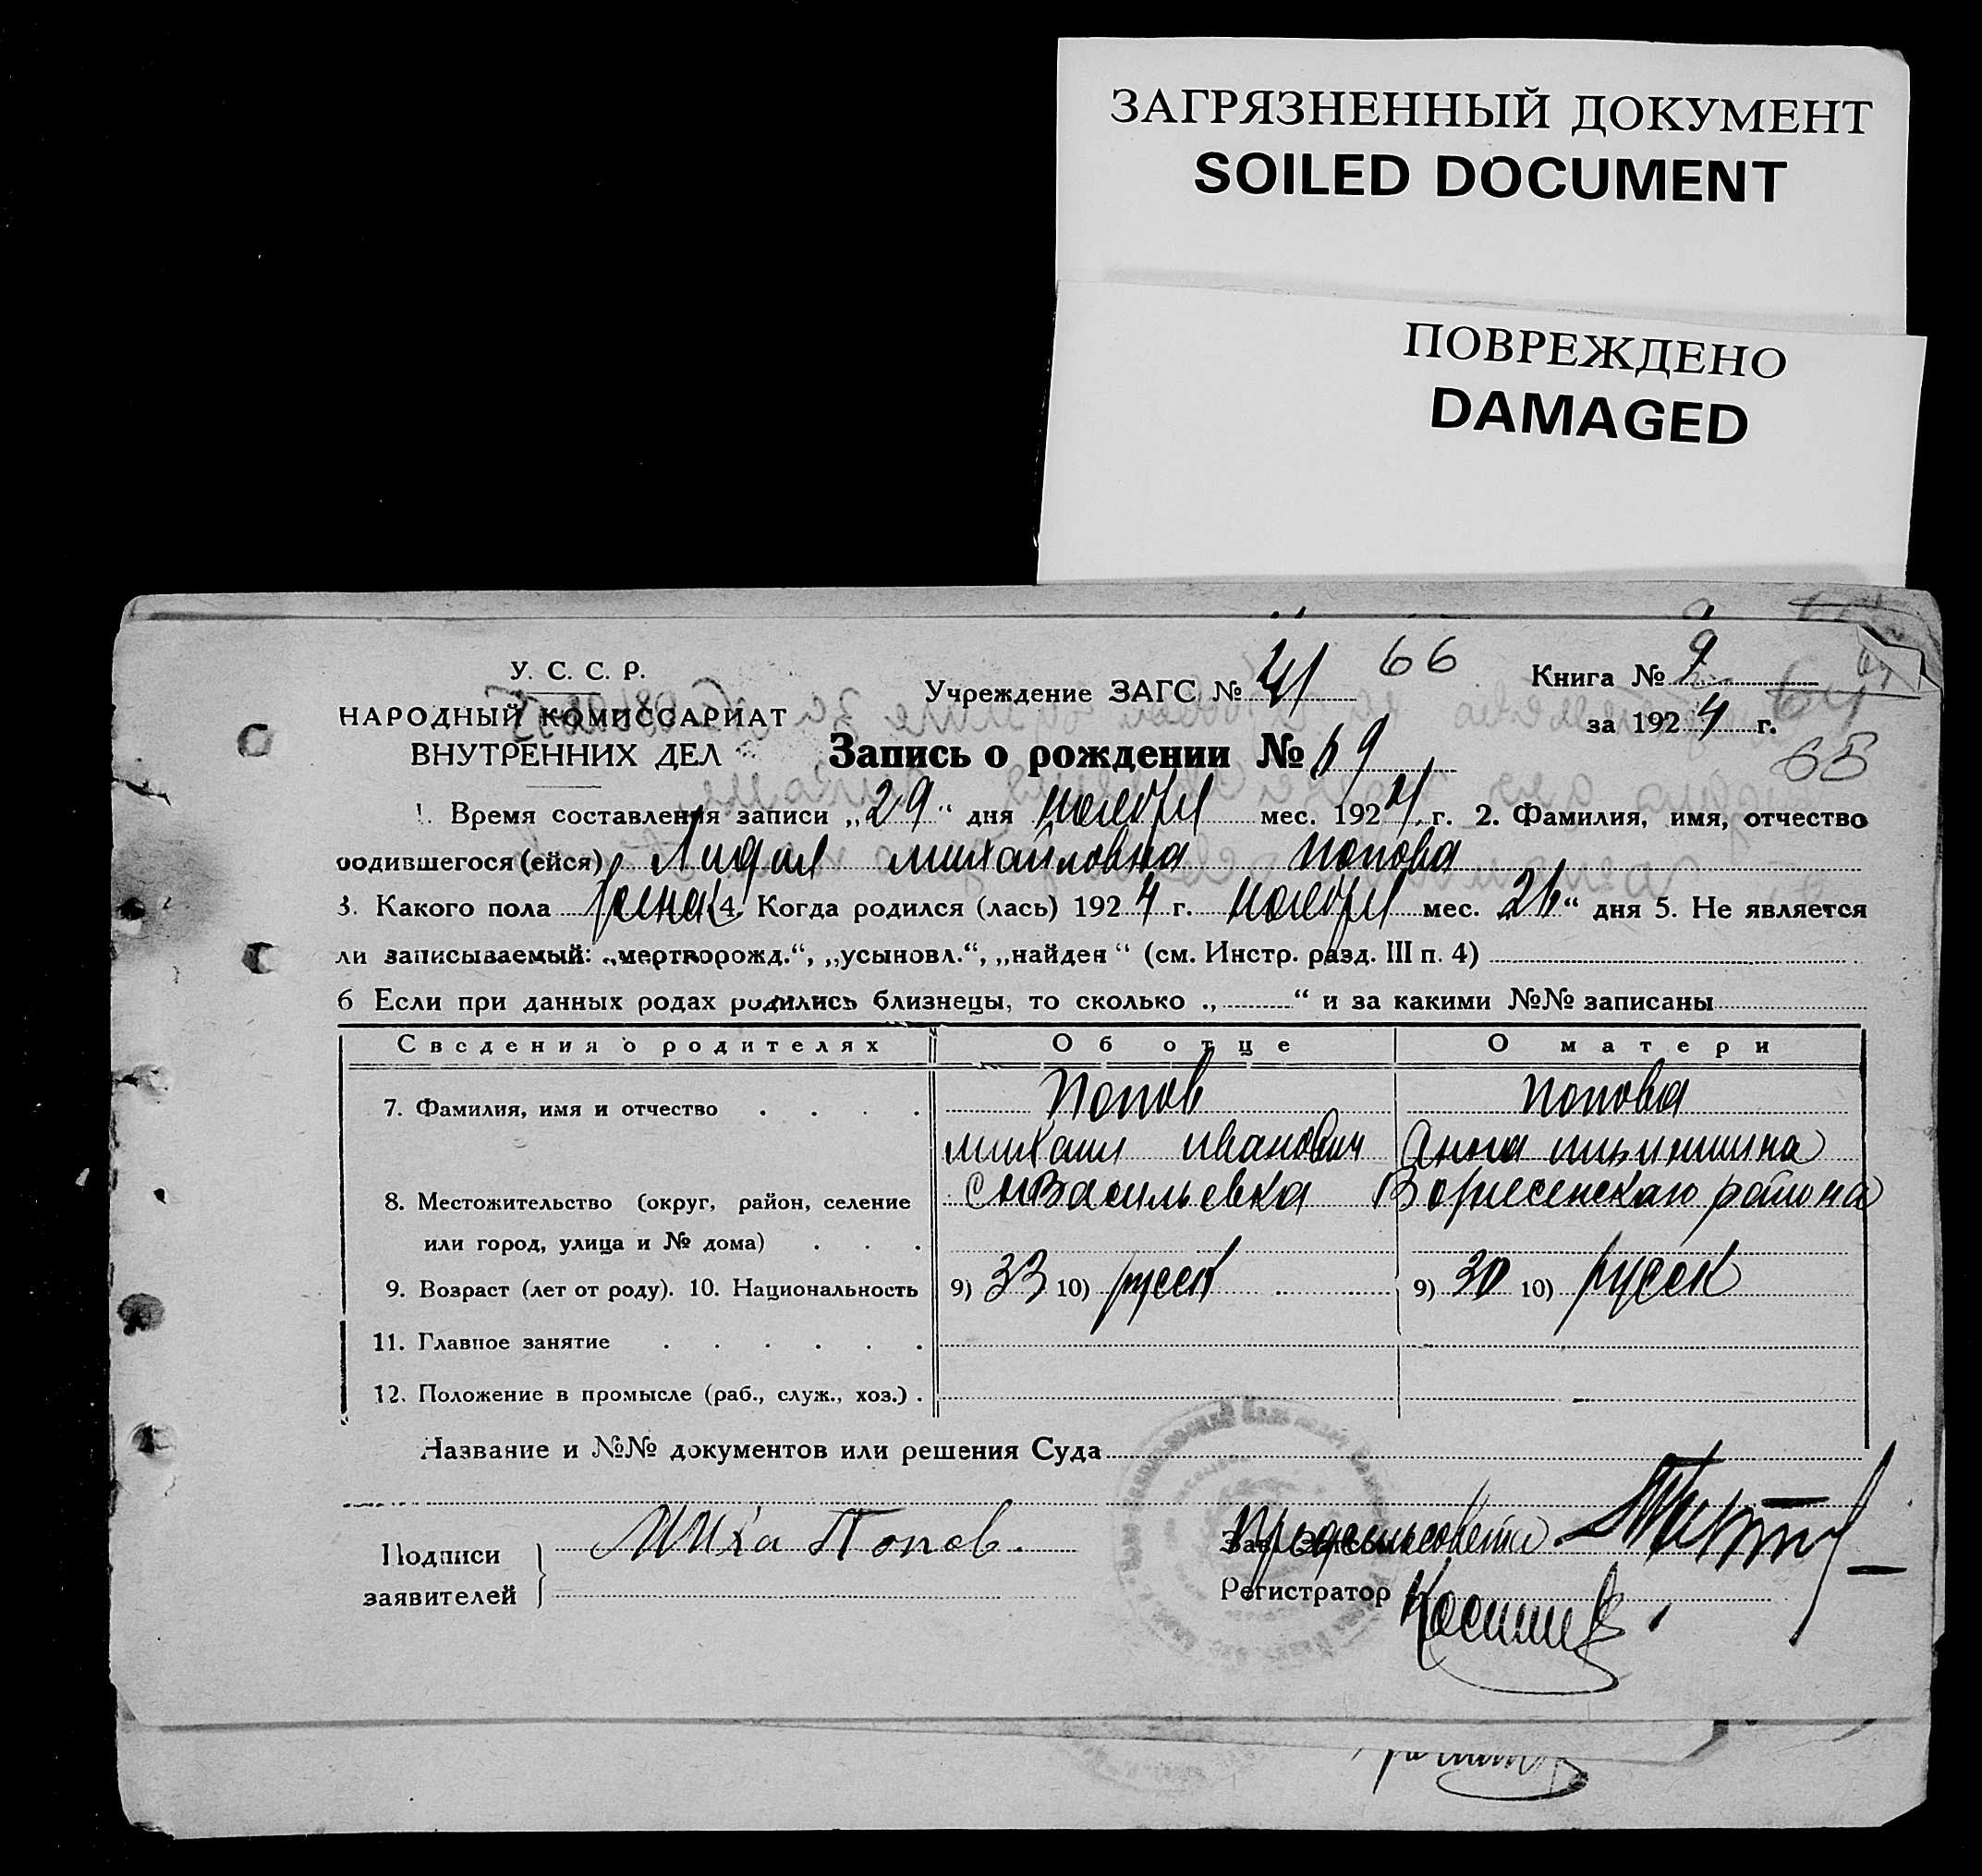 ЗАГРЯЗНЕННЫЙ ДОКУМЕНТ
SOILED DOCUMENT
ПОВРЕЖДЕНО
DAMAGED
У. С. С. Р.
НАРОДНЫЙ КОМИССАРИАТ
ВНУТРЕННИХ ДЕЛ
Учреждение ЗАГС № 41 66
Книга № 2
за 1924 г.
65
Запись о рождении № 69
1. Время составления записи „29“ дня ноября мес. 1924 г. 2. Фамилия, имя, отчество
родившегося (ейся) Лидия михайловна попова
3. Какого пола женск 4. Когда родился (лась) 1924 г. ноября мес. 26“ дня 5. Не является
ли записываемый: „мертворожд.“, „усыновл.“, „найден“ (см. Инстр. разд. III п. 4)
6 Если при данных родах родились близнецы, то сколько „ “ и за какими №№ записаны
Сведения о родителях Об отце О матери
7. Фамилия, имя и отчество Попов попова
михаил иванович Анна
8. Местожительство (округ, район, селение Васильевка района
или город, улица и № дома)
9. Возраст (лет от роду). 10. Национальность 9) 33 10) русск 9) 30 10) русск
11. Главное занятие
12. Положение в промысле (раб., служ., хоз.)
Название и №№ документов или решения Суда
Подписи Миха Попов. Предсельсовета
заявителей Регистратор